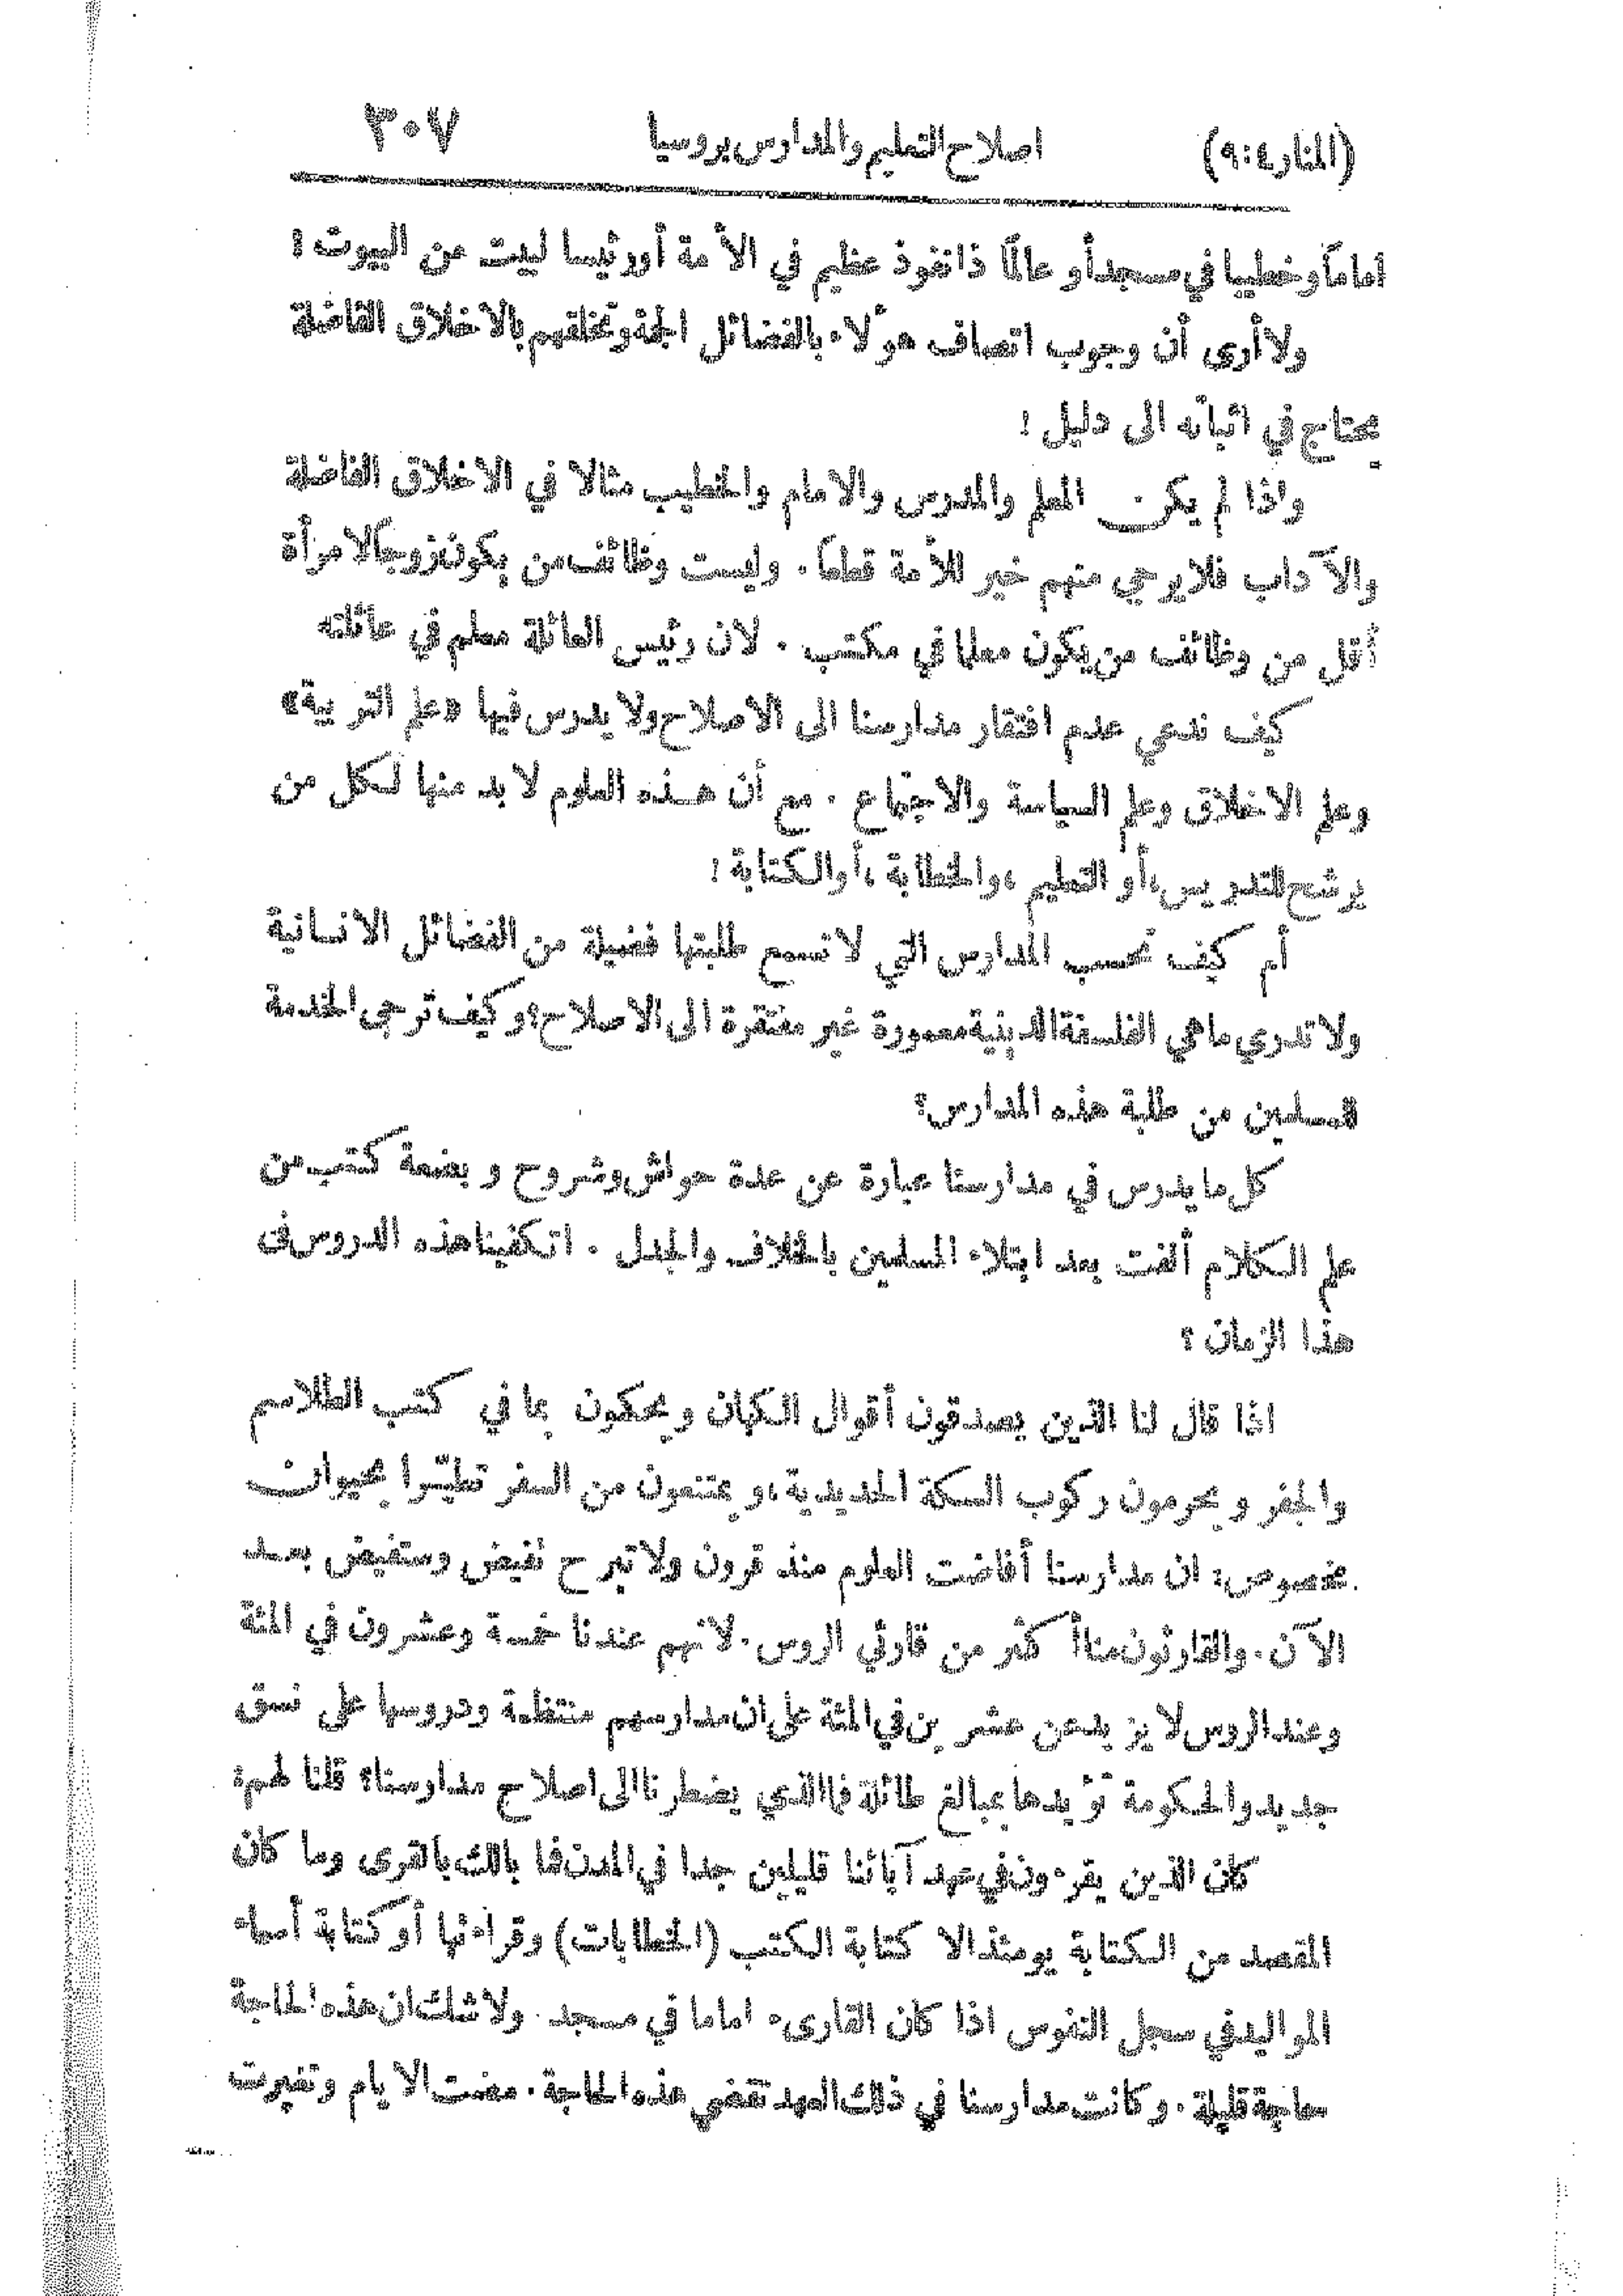 (المنار ٤: ٩) اصلاح التعليم والمدارس بروسيا ٣٠٧
اماماً وخطيبا في مسجد أو عالمًا ذا نفوذ عظيم في الأمة أو رئيسا لبيت من البيوت !
ولا أرى أن وجوب اتصاف هؤلاء بالفضائل الجمة وتخلقهم بالاخلاق الفاضلة
يحتاج في اثباته الى دليل !
واذا لم يكن المعلم والمدرس والامام والخطيب مثالا في الاخلاق الفاضلة
والآداب فلا يرجى منهم خير للأمة قطعاً . وليست وظائف من يكون زوجاً لامرأة
أقل من وظائف من يكون معلما في مكتب . لان رئيس العائلة معلم في عائلته
كيف ندعي عدم افتقار مدارسنا الى الاصلاح ولا يدرس فيها «علم التربية»
وعلم الاخلاق وعلم السياسة والاجتماع . مع أن هذه العلوم لا بد منها لكل من
يرشح للتدريس ، أو التعليم ، والخطابة ، أو الكتابة !
أم كيف تحسب المدارس التي لا تسمع طلبتها فضيلة من الفضائل الانسانية
ولا تدري ما هي الفلسفة الدينية معمورة غير مفتقرة الى الاصلاح؟ وكيف ترجى الخدمة
للمسلمين من طلبة هذه المدارس؟
كل ما يدرس في مدارسنا عبارة عن عدة حواش وشروح وبضعة كتب من
علم الكلام ألفت بعد ابتلاء المسلمين بالخلاف والجدل . اتكفينا هذه الدروس في
هذا الزمان ؟
اذا قال لنا الذين يصدقون أقوال الكهان ويحكون بما في كتب الطلاسم
والجفر ويحرمون ركوب السكة الحديدية ، ويمتنعون من السفر تطيّرا بحيوان
مخصوص : ان مدارسنا أفاضت العلوم منذ قرون ولا تبرح تفيض وستفيض بعد
الآن . والقارئون منا أكثر من قارئي الروس . لانهم عندنا خمسة وعشرون في المئة
وعند الروس لا يزيد عن عشرين في المئة على ان مدارسهم منتظمة ودروسها على نسق
جديد والحكومة تؤيدها بمبالغ طائلة فما الذي يضطرنا الى اصلاح مدارسنا؟ قلنا لهم :
كان الذين يقرءون في عهد آبائنا قليلين جدا في المدن فما بالك بالقرى وما كان
المقصد من الكتابة يومئذ الا كتابة الكتب (الخطابات) وقراءتها أو كتابة أسماء
المواليد في سجل النفوس اذا كان القارىء اماما في مسجد . ولا شك ان هذه الحاجة
حاجة قليلة . وكانت مدارسنا في ذلك العهد تقضي هذه الحاجة . مضت الايام وتغيرت